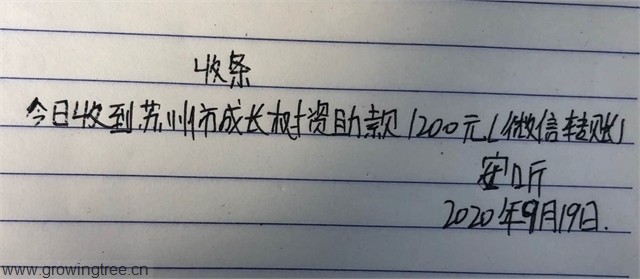 收条
今日收到苏州市成长树资助款1200元(微信转账)
安听
2020年9月19日.
www.growingtree.cn